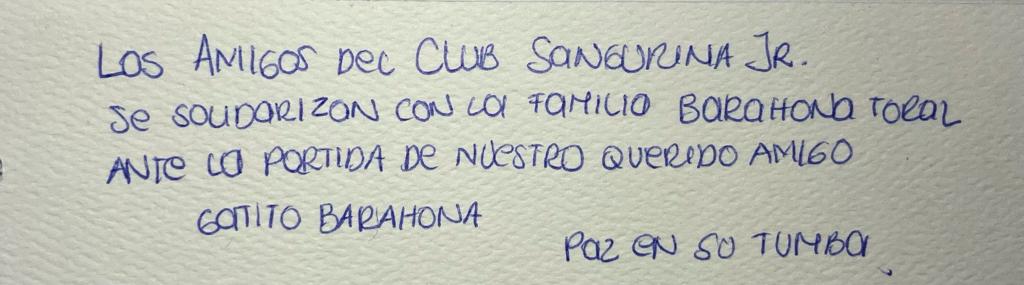 LOS AMIGOS DEL CLUB SANGURINA JR.
SE SOLIDARIZAN CON LA FAMILIA BARAHONA TORAL
ANTE LA PARTIDA DE NUESTRO QUERIDO AMIGO
GATITO BARAHONA
PAZ EN SU TUMBA